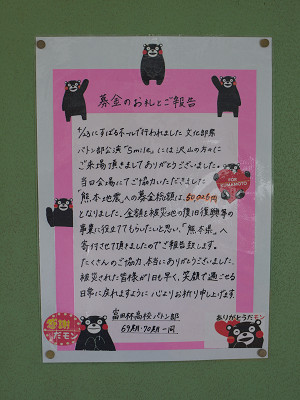 募金のお礼とご報告
4/23にすばるホールで行われました 文化部展
バトン部公演「Smile」には沢山の方々に
ご来場頂きましてありがとうございました。
当日会場にてご協力いただきました
「熊本地震」への募金総額は、
となりました。全額を被災地の復旧復興等の
事業に役立ててもらいたいと思い、「熊本県」へ
寄付させて頂きましたのでご報告致します。
たくさんのご協力、本当にありがとうございました。
被災された皆様が1日も早く、笑顔で過ごせる
日常に戻れますように 心よりお祈り申し上げます。
富田林高校バトン部
69期・70期一同
FOR KUMAMOTO
感謝
だモン
ありがとうだモン